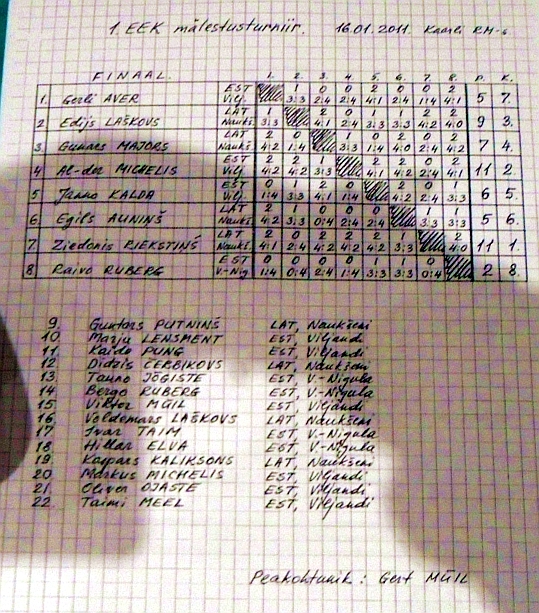 1. EEK mälestusturniir. 16.01.2011. Kaarli RM-s
FINAAL. 1. 2. 3. 4. 5. 6. 7. 8. P. K.
1. Gerli AVER EST Vilj. 1 0 0 2 0 0 2 5 7.
3:3 2:4 2:4 4:1 2:4 1:4 4:1
2 Edijs LAŠKOVS LAT Naukš. 9 3.
3:3 4:1 2:4 3:3 3:3 4:2 4:0
3. Gunars MAJORS LAT Naukš. 7 4.
4:2 1:4 3:3 1:4 4:0 2:4 4:2
4 Al-der MICHELIS EST Vilj. 11 2.
4:2 4:2 3:3 4:1 4:2 2:4 4:1
5 Janno KALDA EST Vilj. 6 5.
1:4 3:3 4:1 1:4 2:4 3:3
6 Egils AUNIŅŠ LAT Naukš. 5 6.
4:2 3:3 0:4 2:4 3:3 3:3
7 Ziedonis RIEKSTIŅŠ LAT Naukš. 11 1.
4:1 2:4 4:2 4:2 4:2 3:3 4:0
8 Raivo RUBERG EST V-Nig 0 0 0 0 1 1 0 2 8.
1:4 0:4 2:4 1:4 3:3 3:3 0:4
9 Guntars PUTNIŅŠ LAT, Naukšeni
10 Marju LENSMENT EST, Viljandi
11 Kaido PUNG EST, Viljandi
12 Didzis CERBIKOVS LAT, Naukšeni
13 Tanno JÕGISTE EST, V.-Nigula
14 Bergo RUBERG EST, V.-Nigula
15 Viktor MÜIL EST, Viljandi
16 Voldemars LAŠKOVS LAT, Naukšeni
17 Ivar TAIM EST, V.-Nigula
18 Hillar ELVA EST, V.-Nigula
19. Kaspars KALIKSONS LAT, Naukšeni
20 Markus MICHELIS EST, Viljandi
21 Oliver OJASTE EST, Viljandi
22. Taimi MEEL EST, Viljandi
Peakohtunik: Gert MÜIL